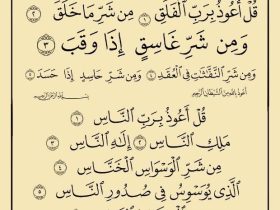 قُلْ أَعُوذُ بِرَبِّ ٱلْفَلَقِ ١ مِن شَرِّ مَا خَلَقَ ٢
وَمِن شَرِّ غَاسِقٍ إِذَا وَقَبَ ٣
وَمِن شَرِّ ٱلنَّفَّٰثَٰتِ فِى ٱلْعُقَدِ ٤ وَمِن شَرِّ حَاسِدٍ إِذَا حَسَدَ ٥
أعوذ بالله من الشيطان الرجيم بسم الله الرحمن الرحيم
قُلْ أَعُوذُ بِرَبِّ ٱلنَّاسِ ١
مَلِكِ ٱلنَّاسِ ٢ إِلَٰهِ ٱلنَّاسِ ٣
مِن شَرِّ ٱلْوَسْوَاسِ ٱلْخَنَّاسِ ٤
ٱلَّذِى يُوَسْوِسُ فِى صُدُورِ ٱلنَّاسِ ٥